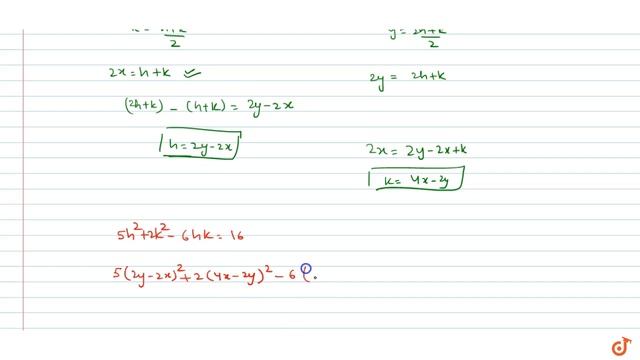 2
y = 2h+k
2
2x = h+k
2y = 2h+k
(2h+k) - (h+k) = 2y-2x
h = 2y-2x
2x = 2y-2x+k
k = 4x-2y
5h²+2k²-6hk = 16
5(2y-2x)²+2(4x-2y)²-6(